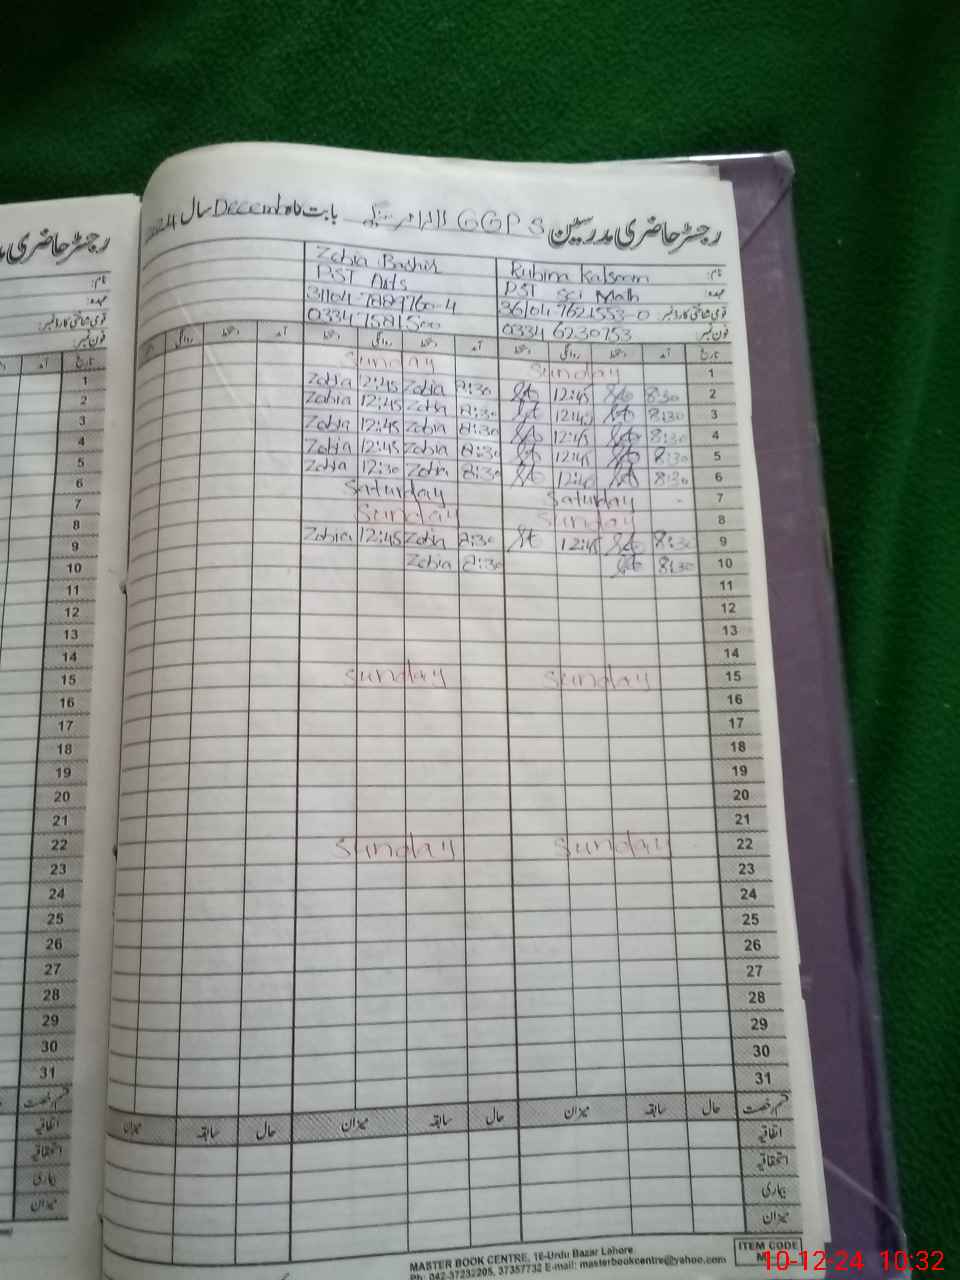 رجسٹر حاضری مدرسین GGPS بابت ماہ December سال 2024
نام: Rubina Kalsoom Zobia Bashir
عہدہ: PST Sci Math PST Arts
قومی شناختی کارڈ نمبر: 36104-7621553-0
فون نمبر: 0334 6230753
تاریخ آمد دستخط روانگی دستخط آمد دستخط روانگی دستخط آمد دستخط روانگی
1 Sunday Sunday
2 8:30 12:45 8:30 Zobia 12:45 Zobia
3 8:30 12:45 8:30 Zobia 12:45 Zobia
4 8:30 12:45 8:30 Zobia 12:45 Zobia
5 8:30 12:45 8:30 Zobia 12:45 Zobia
6 8:30 8:30 Zobia 12:30 Zobia
7 Saturday Saturday
8 Sunday Sunday
9 8:30 12:45 8:30 Zobia 12:45 Zobia
10 8:30 8:30 Zobia
11
12
13
14
15 Sunday Sunday
16
17
18
19
20
21
22 Sunday Sunday
23
24
25
26
27
28
29
30
31
قسم رخصت حال سابقہ میزان حال سابقہ میزان حال سابقہ میزان
اتفاقیہ
استحقاقیہ
بیماری
میزان
رجسٹر حاضری
نام:
عہدہ:
قومی شناختی کارڈ نمبر:
فون نمبر
تاریخ آمد
1
2
3
4
5
6
7
8
9
10
11
12
13
14
15
16
17
18
19
20
21
22
23
24
25
26
27
28
29
30
31
قسم رخصت
اتفاقیہ
استحقاقیہ
بیماری
میزان
MASTER BOOK CENTRE, 16-Urdu Bazar Lahore
Ph: 042-37232205, 37357732 E-mail: masterbookcentre@yahoo.com
ITEM CODE
10-12-24 10:32